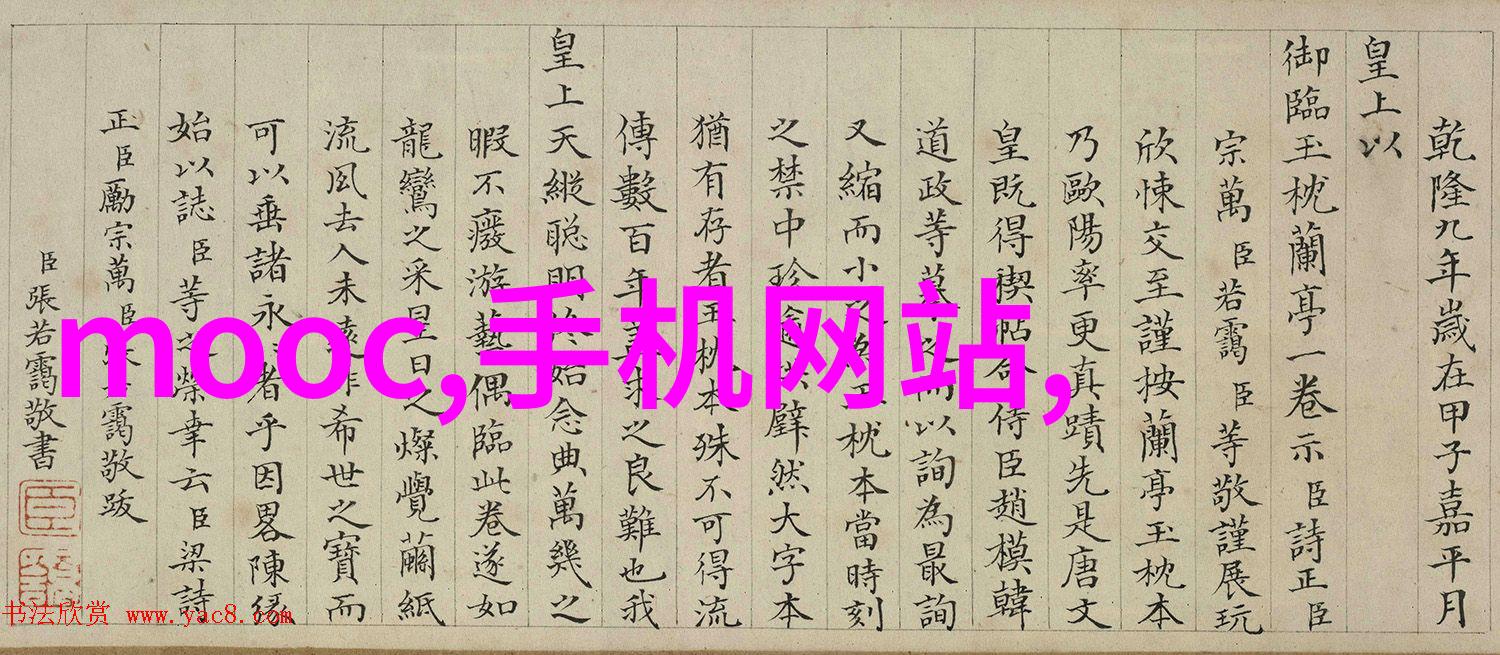 乾隆九年歲在甲子嘉平月
皇上以
御臨玉枕蘭亭一卷示臣詩正臣
宗萬臣若靄臣等敬謹展玩
欣悚交至謹按蘭亭玉枕本
乃歐陽率更真蹟先是唐文
皇既得禊帖命侍臣趙模韓
道政等摹之而以詢為最詢
又縮而小之為玉枕本當時刻
之禁中珍逾拱璧然大字本
猶有存者玉枕本殊不可得流
傳數百年善本之良難也我
皇上天縱聰明終始念典萬幾之
暇不癈游藝偶臨此卷遂如
龍鸞之采星日之燦覺繭紙
流風去人未遠作希世之寶而
可以垂諸永者乎因畧陳緣
始以誌臣等之榮幸云臣梁詩
正臣勵宗萬臣張若靄敬跋
臣張若靄敬書
mooc,手机网站,
书法欣赏 www.yac8.com